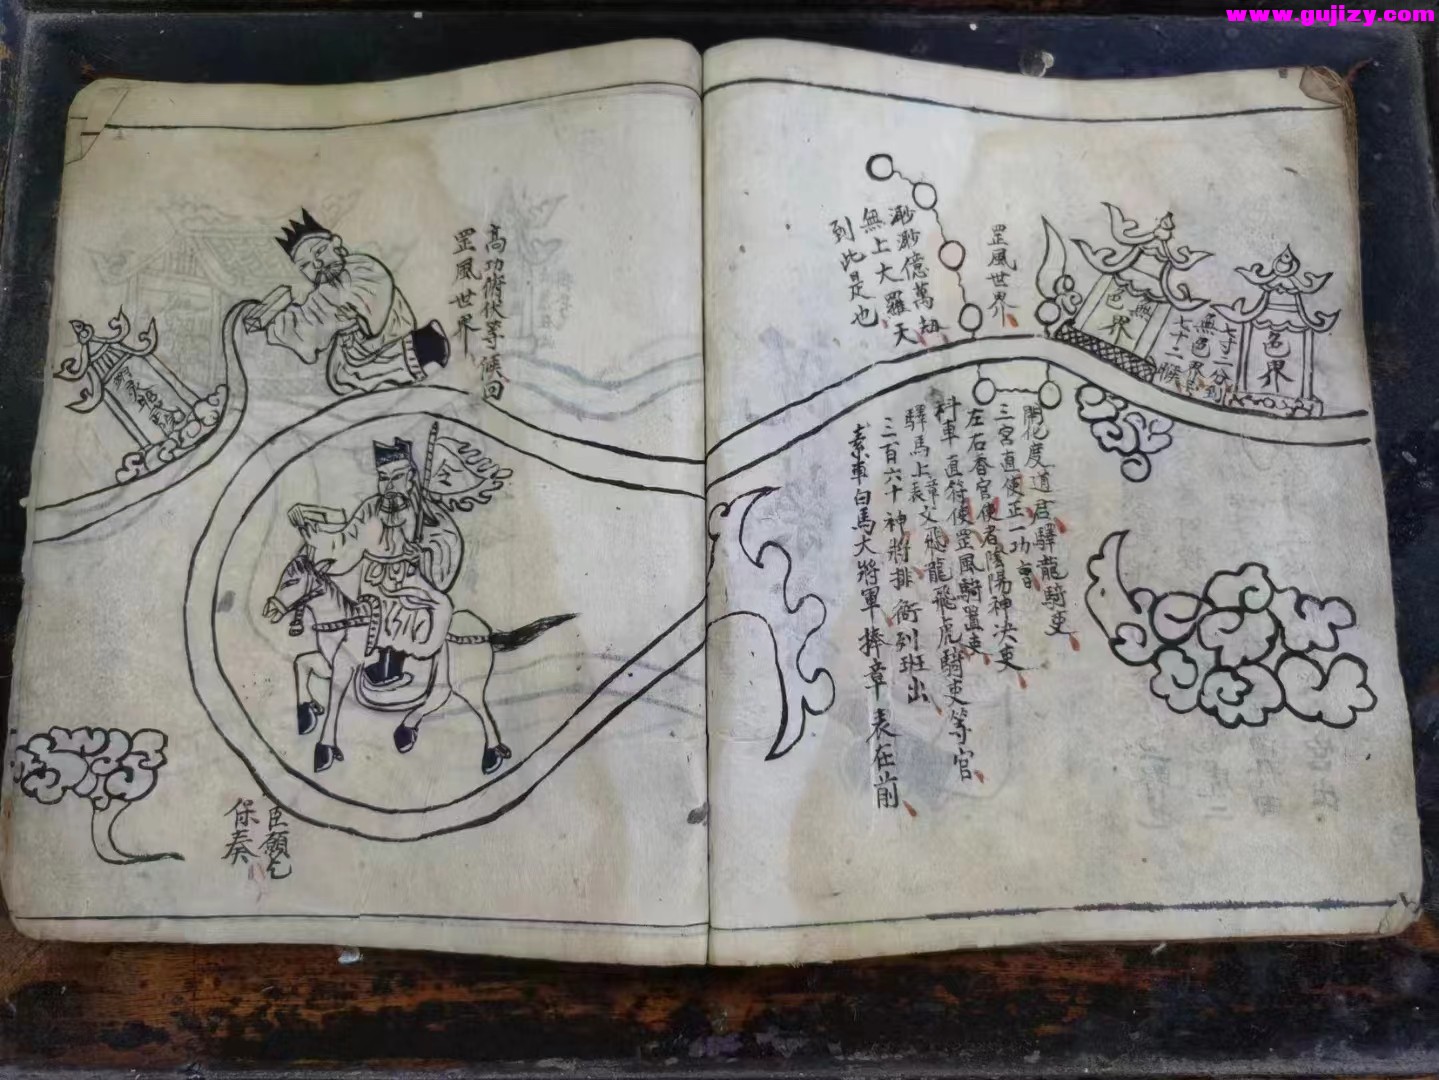 www.gujizy.com
色界
七寸二分到
無色界
七十二候
無色界
罡風世界
渺渺億萬劫
無上大羅天
到此是也
開化度道君驛龍騎吏
三宮直使正一功曹
左右香官使者陰陽神决吏
科車直符使罡風騎置吏
驛馬上章父飛龍飛虎騎吏等官
三百六十神將排衙列班出
素車白馬大將軍捧章表在前
高功俯伏等候回
罡風世界
令
臣願乞
保奏